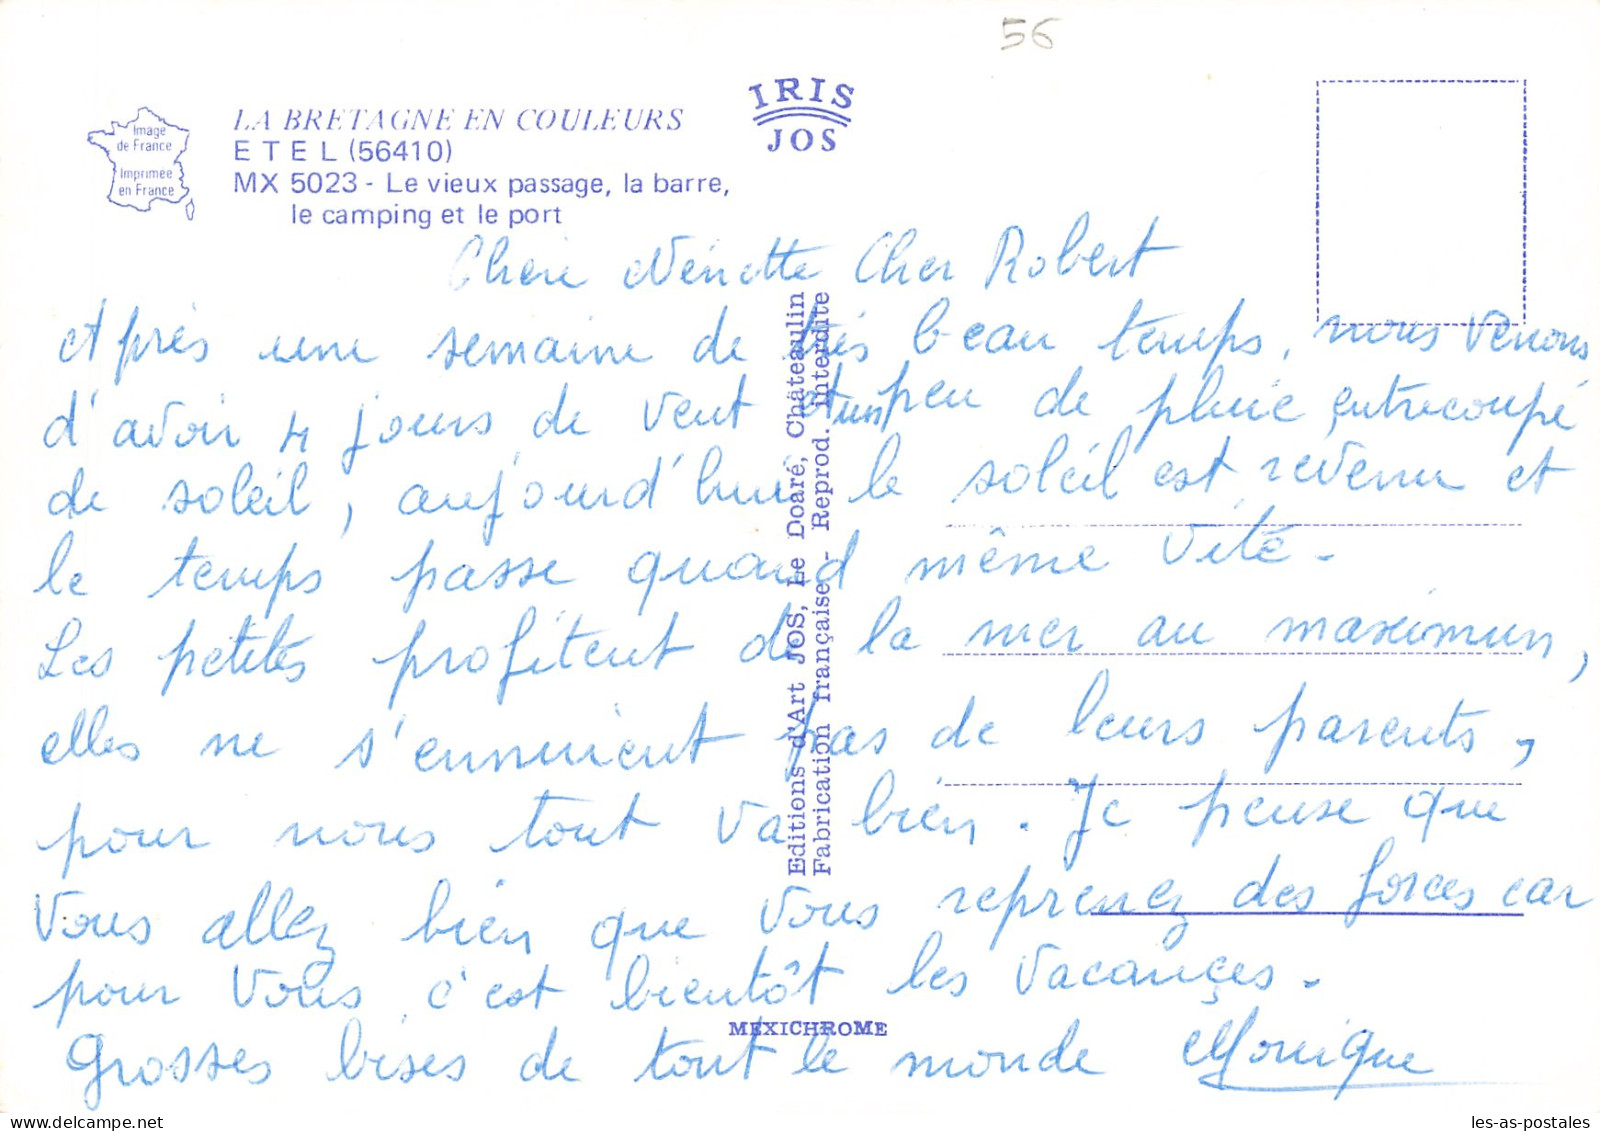 56
IRIS
JOS
Image
de France
Imprimée
en France
LA BRETAGNE EN COULEURS
ETEL (56410)
MX 5023 - Le vieux passage, la barre,
le camping et le port
Chère Nénette Cher Robert
Après une semaine de très beau temps, nous venons
d'avoir 4 jours de vent et un peu de pluie entrecoupé
de soleil, aujourd'hui le soleil est revenu et
le temps passe quand même vite.
Les petites profitent de la mer au maximum,
elles ne s'ennuient pas de leurs parents,
pour nous tout va bien. Je pense que
vous allez bien que vous reprenez des forces car
pour vous c'est bientôt les vacances.
Grosses bises de tout le monde Monique
Editions d'Art JOS, Le Doaré, Châteaulin
Fabrication française - Reprod. interdite
MEXICHROME
les-as-postales